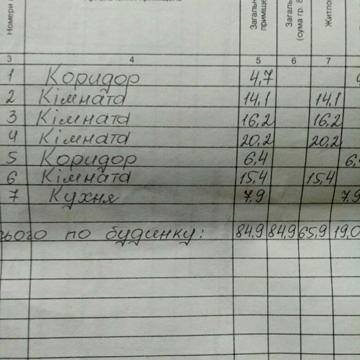 Номери
Загальна
приміщен
Загал
(сума гр. 8
Житлов
3 4 5 6 7
1 Коридор 4,7
2 Кімната 14,1 14,1
3 Кімната 16,2 16,2
4 Кімната 20,2 20,2
5 Коридор 6,4 6,
6 Кімната 15,4 15,4
7 Кухня 7.9 7.9
ього по будинку: 84,9 84,9 65,9 19,0